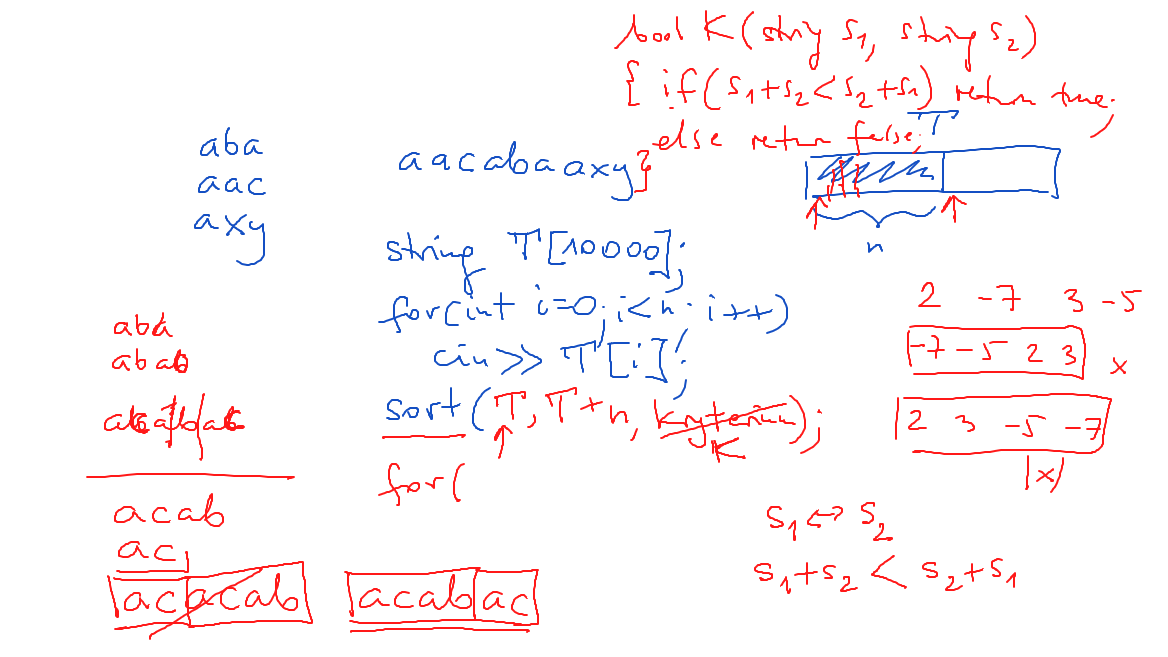 bool K(string s1, string s2)
{ if(s1+s2<s2+s1) return true;
else return false;
}
T
n
aba
aac
axy
aacabaaxy
string T[10000];
for(int i=0; i<n; i++)
cin>> T[i];
sort(T, T+n, kryterium);
K
for(
2 -7 3 -5
-7 -5 2 3 x
2 3 -5 -7
|x|
aba
abab
acab
ac
acacab
acabac
s1 ↔ s2
s1+s2 < s2+s1